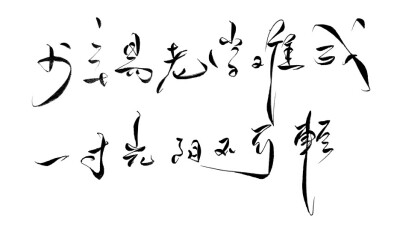 少年易老学难成
一寸光阴不可轻